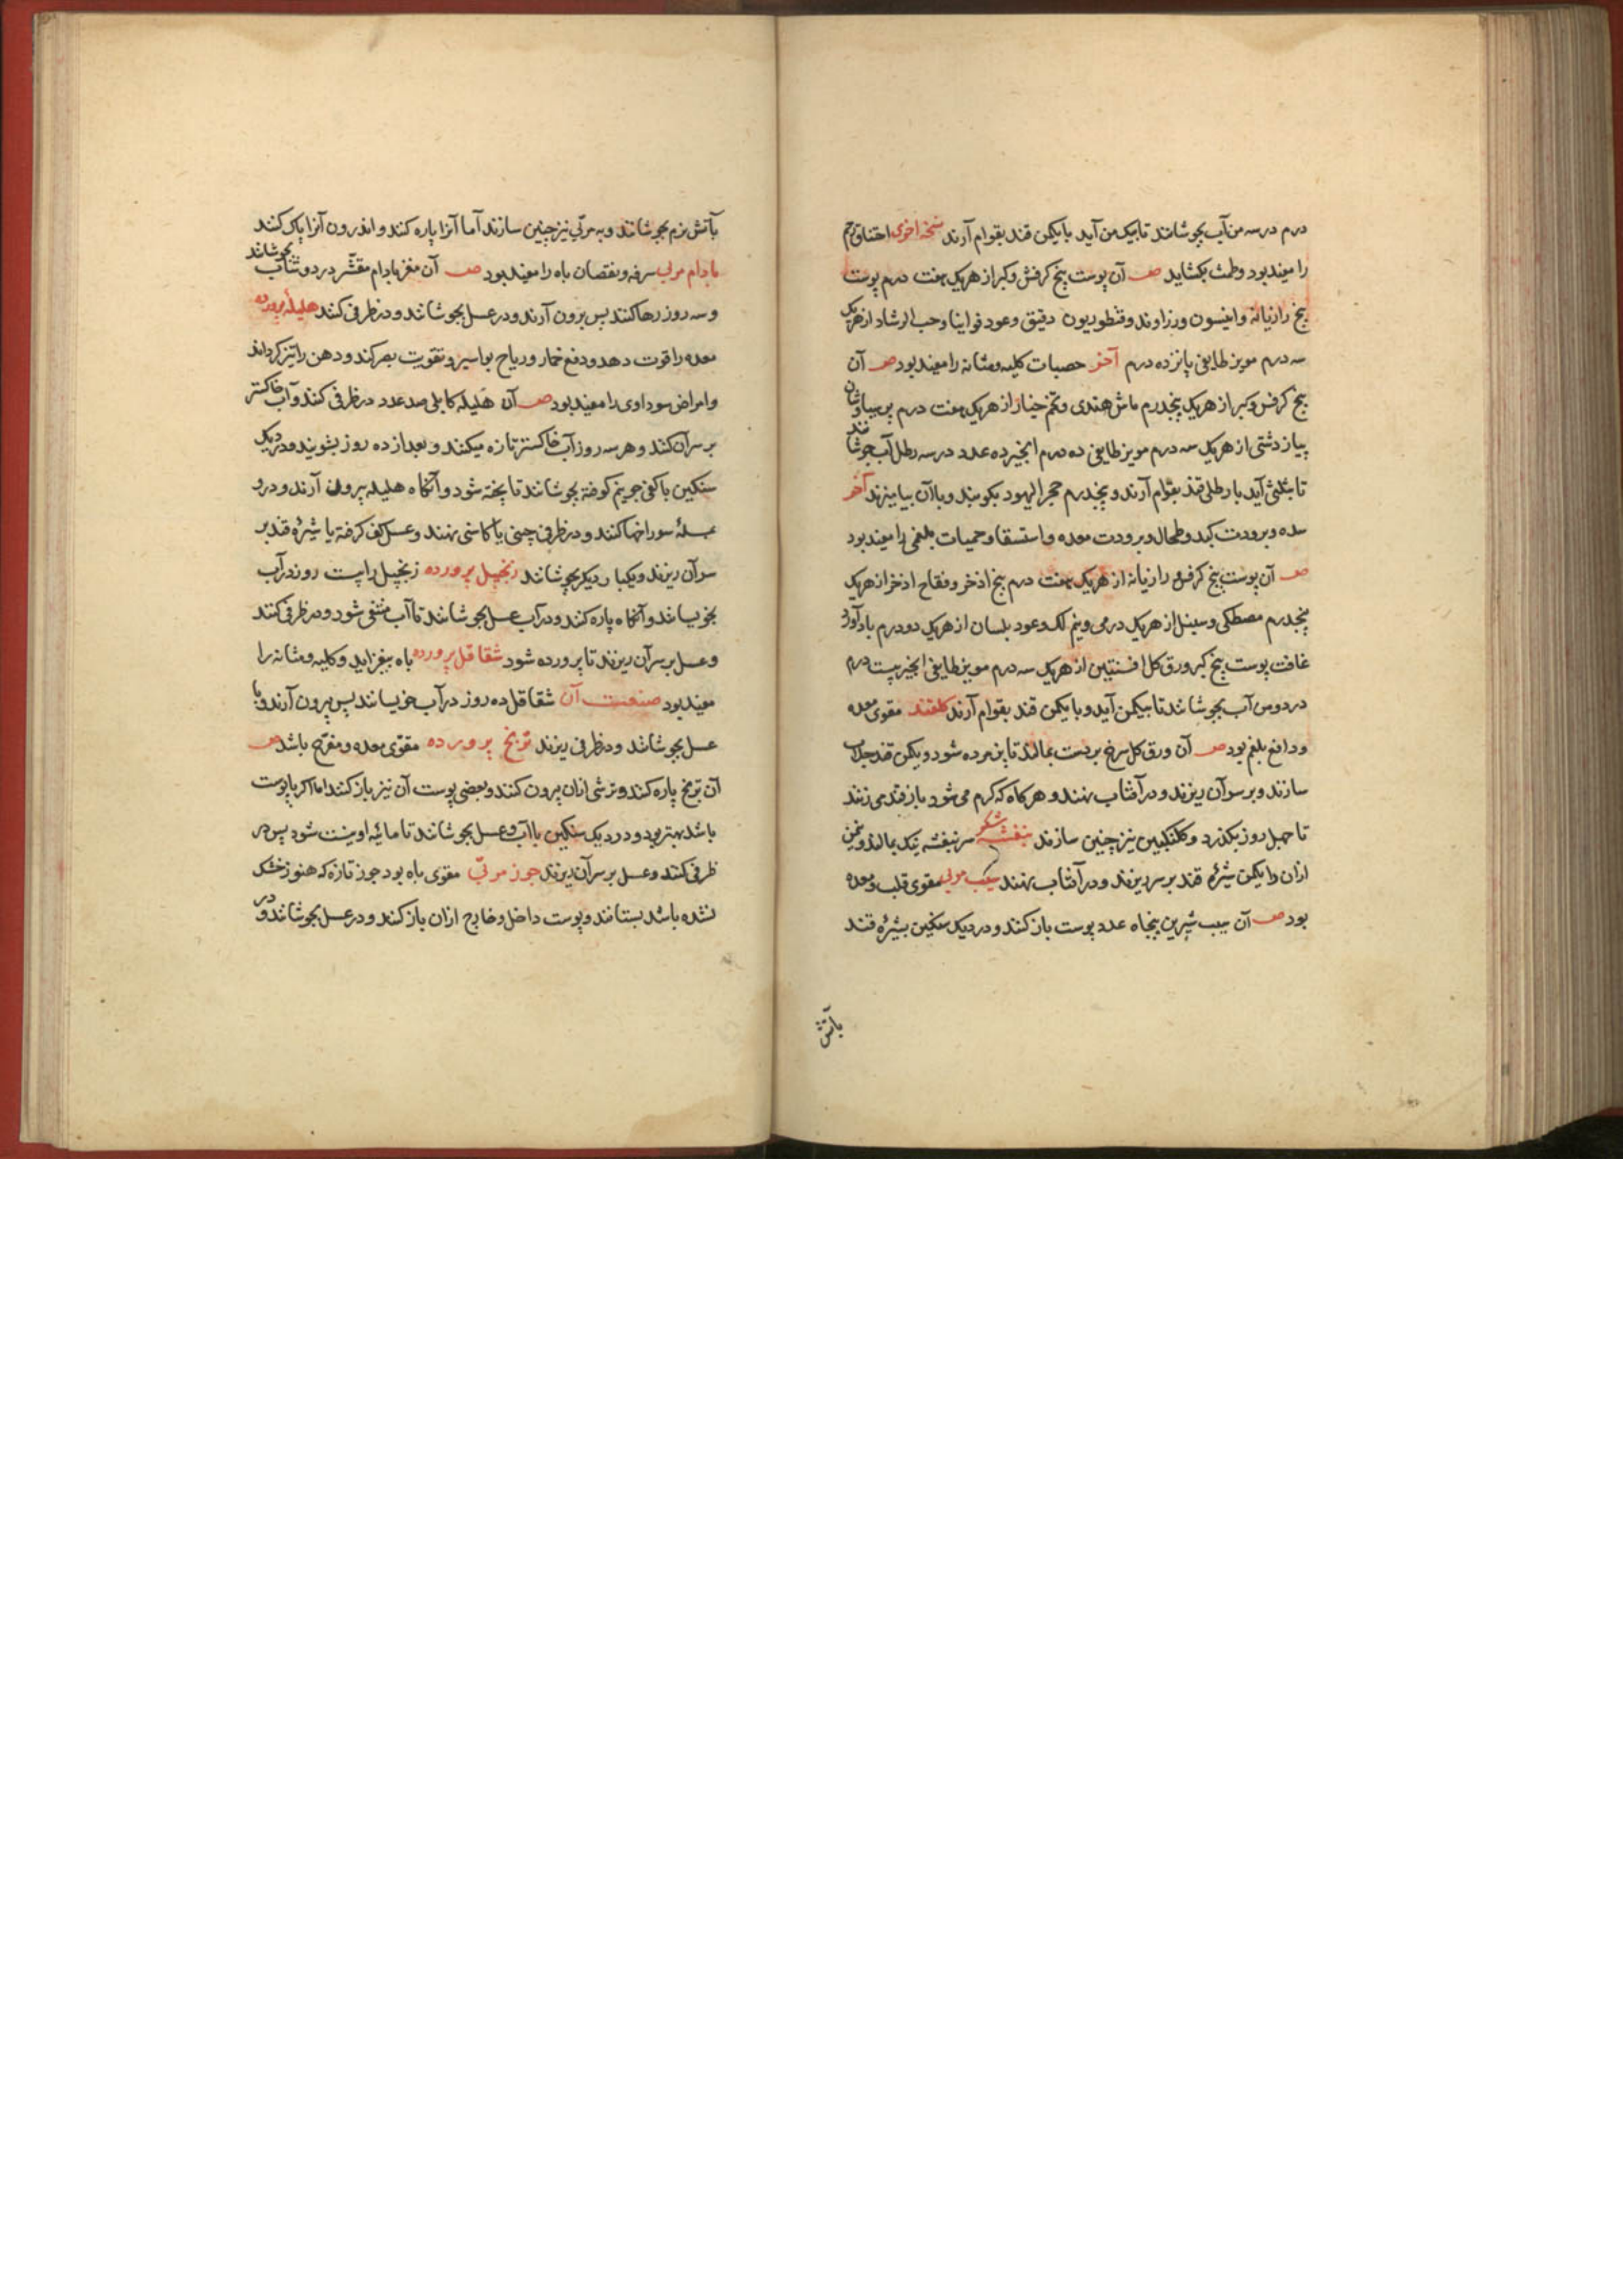 درم درسه من آب بجوشانند تا بیک من آید با یکمن قند بقوام آرند نسخه اخری اختناق رحم
را مفید بود وطمث بکشاید صـ آن پوست بیخ کرفش وکبر از هریک هفت درم پوست
بیخ رازیانه وانیسون وزراوند وقنطوریون دقیق وعود فواینا وحب الرشاد از هریک
سه درم مویز طایفی پانزده درم آخر حصیات کلیه ومثانه را مفید بود صـ آن
بیخ کرفس وکبر از هریک پنجدرم ماش هندی وتخم خیار از هریک هفت درم پرسیاوشان
پیاز دشتی از هریک سه درم مویز طایفی ده درم انجیر ده عدد درسه رطل آب جوشانند
تا بثلثی آید با رطلی قند بقوام آرند وپنجدرم حجر الیهود بکوبند وباآن بیامیزند آخر
سده وبرودت کبد وطحال وبرودت معده واستسقا وحمیات بلغمی را مفید بود
صـ آن پوست بیخ کرفس و رازیانه از هریک هفت درم بیخ اذخر وفقاح اذخر از هریک
پنجدرم مصطکی وسنبل از هریک درمی ونیم لک وعود بلسان از هریک دودرم بادآورد
غافت پوست بیخ کبر ورق کل افسنتین از هریک سه درم مویز طایفی انجیر بیست درم
دردومن آب بجوشانند تا بیکمن آید وبا یکمن قند بقوام آرند کلقند مقوی معده
ودافع بلغم بود صـ آن ورق کل سرخ بردست بمالند تا پژمرده شود ویکمن قند جلاب
سازند وبرسر آن ریزند ودرآفتاب نهند وهرکاه که کرم می شود باز قند می زنند
تا چهل روز بکذرد وکلنکبین نیز چنین سازند بنفشه شکر سر بنفشه نیک بمالند ونیمن
ازان را یکمن شیرهٔ قند برسر ریزند ودرآفتاب نهند سیب مربی مقوی قلب ومعده
بود صـ آن سیب شیرین پنجاه عدد پوست باز کنند ودردیک سنکین بشیرهٔ قند
بآتش
بآتش نرم بجوشانند وبه مربی نیز چنین سازند اما آنرا پاره کنند واندرون آنرا پاک کنند
بادام مربی سرفه ونقصان باه را مفید بود صـ آن مغز بادام مقشّر در دوشاب بجوشانند
وسه روز رها کنند پس برون آرند ودرعسل بجوشانند ودرظرفی کنند هلیلهٔ پرورده
معده را قوت دهد ودفع خمار وریاح بواسیر وتقویت بصر کند وذهن را تیز کرداند
وامراض سوداوی را مفید بود صـ آن هلیلهٔ کابلی صد عدد درظرفی کنند وآب خاکستر
برسر آن کنند وهرسه روز آب خاکستر تازه میکنند وبعد از ده روز بشویند ودر دیک
سنکین با کفی جو نیم کوفته بجوشانند تا پخته شود وآنکاه هلیله بیرون آرند ودرو
بمسله سوراخها کنند ودرظرفی چینی یا کاشی نهند وعسل کف کرفته یا شیرهٔ قند بر
سرآن ریزند ویکبار دیکر بجوشانند زنجبیل پرورده زنجبیل را بیست روز درآب
بخویسانند وآنکاه پاره کنند ودرآب عسل بجوشانند تا آب منتفی شود ودرظرفی کنند
وعسل برسر آن ریزند تا پرورده شود شقاقل پرورده باه بیفزاید وکلیه ومثانه را
مفید بود صنعت آن شقاقل ده روز درآب خویسانند پس بیرون آرند وبا
عسل بجوشانند ودرظرفی ریزند ترنج پرورده مقوّی معده ومفرّح باشد صـ
آن ترنج پاره کنند وترشی ازان بیرون کنند وبعضی پوست آن نیز باز کنند اما اکر با پوست
باشد بهتر بود ودردیک سنکین باآب وعسل بجوشانند تا مائیه او نیست شود پس در
ظرفی کنند وعسل برسر آن ریزند جوز مربّی مقوی باه بود جوز تازه که هنوز خشک
نشده باشد بستانند وپوست داخل وخارج ازان باز کنند ودرعسل بجوشانند ودر